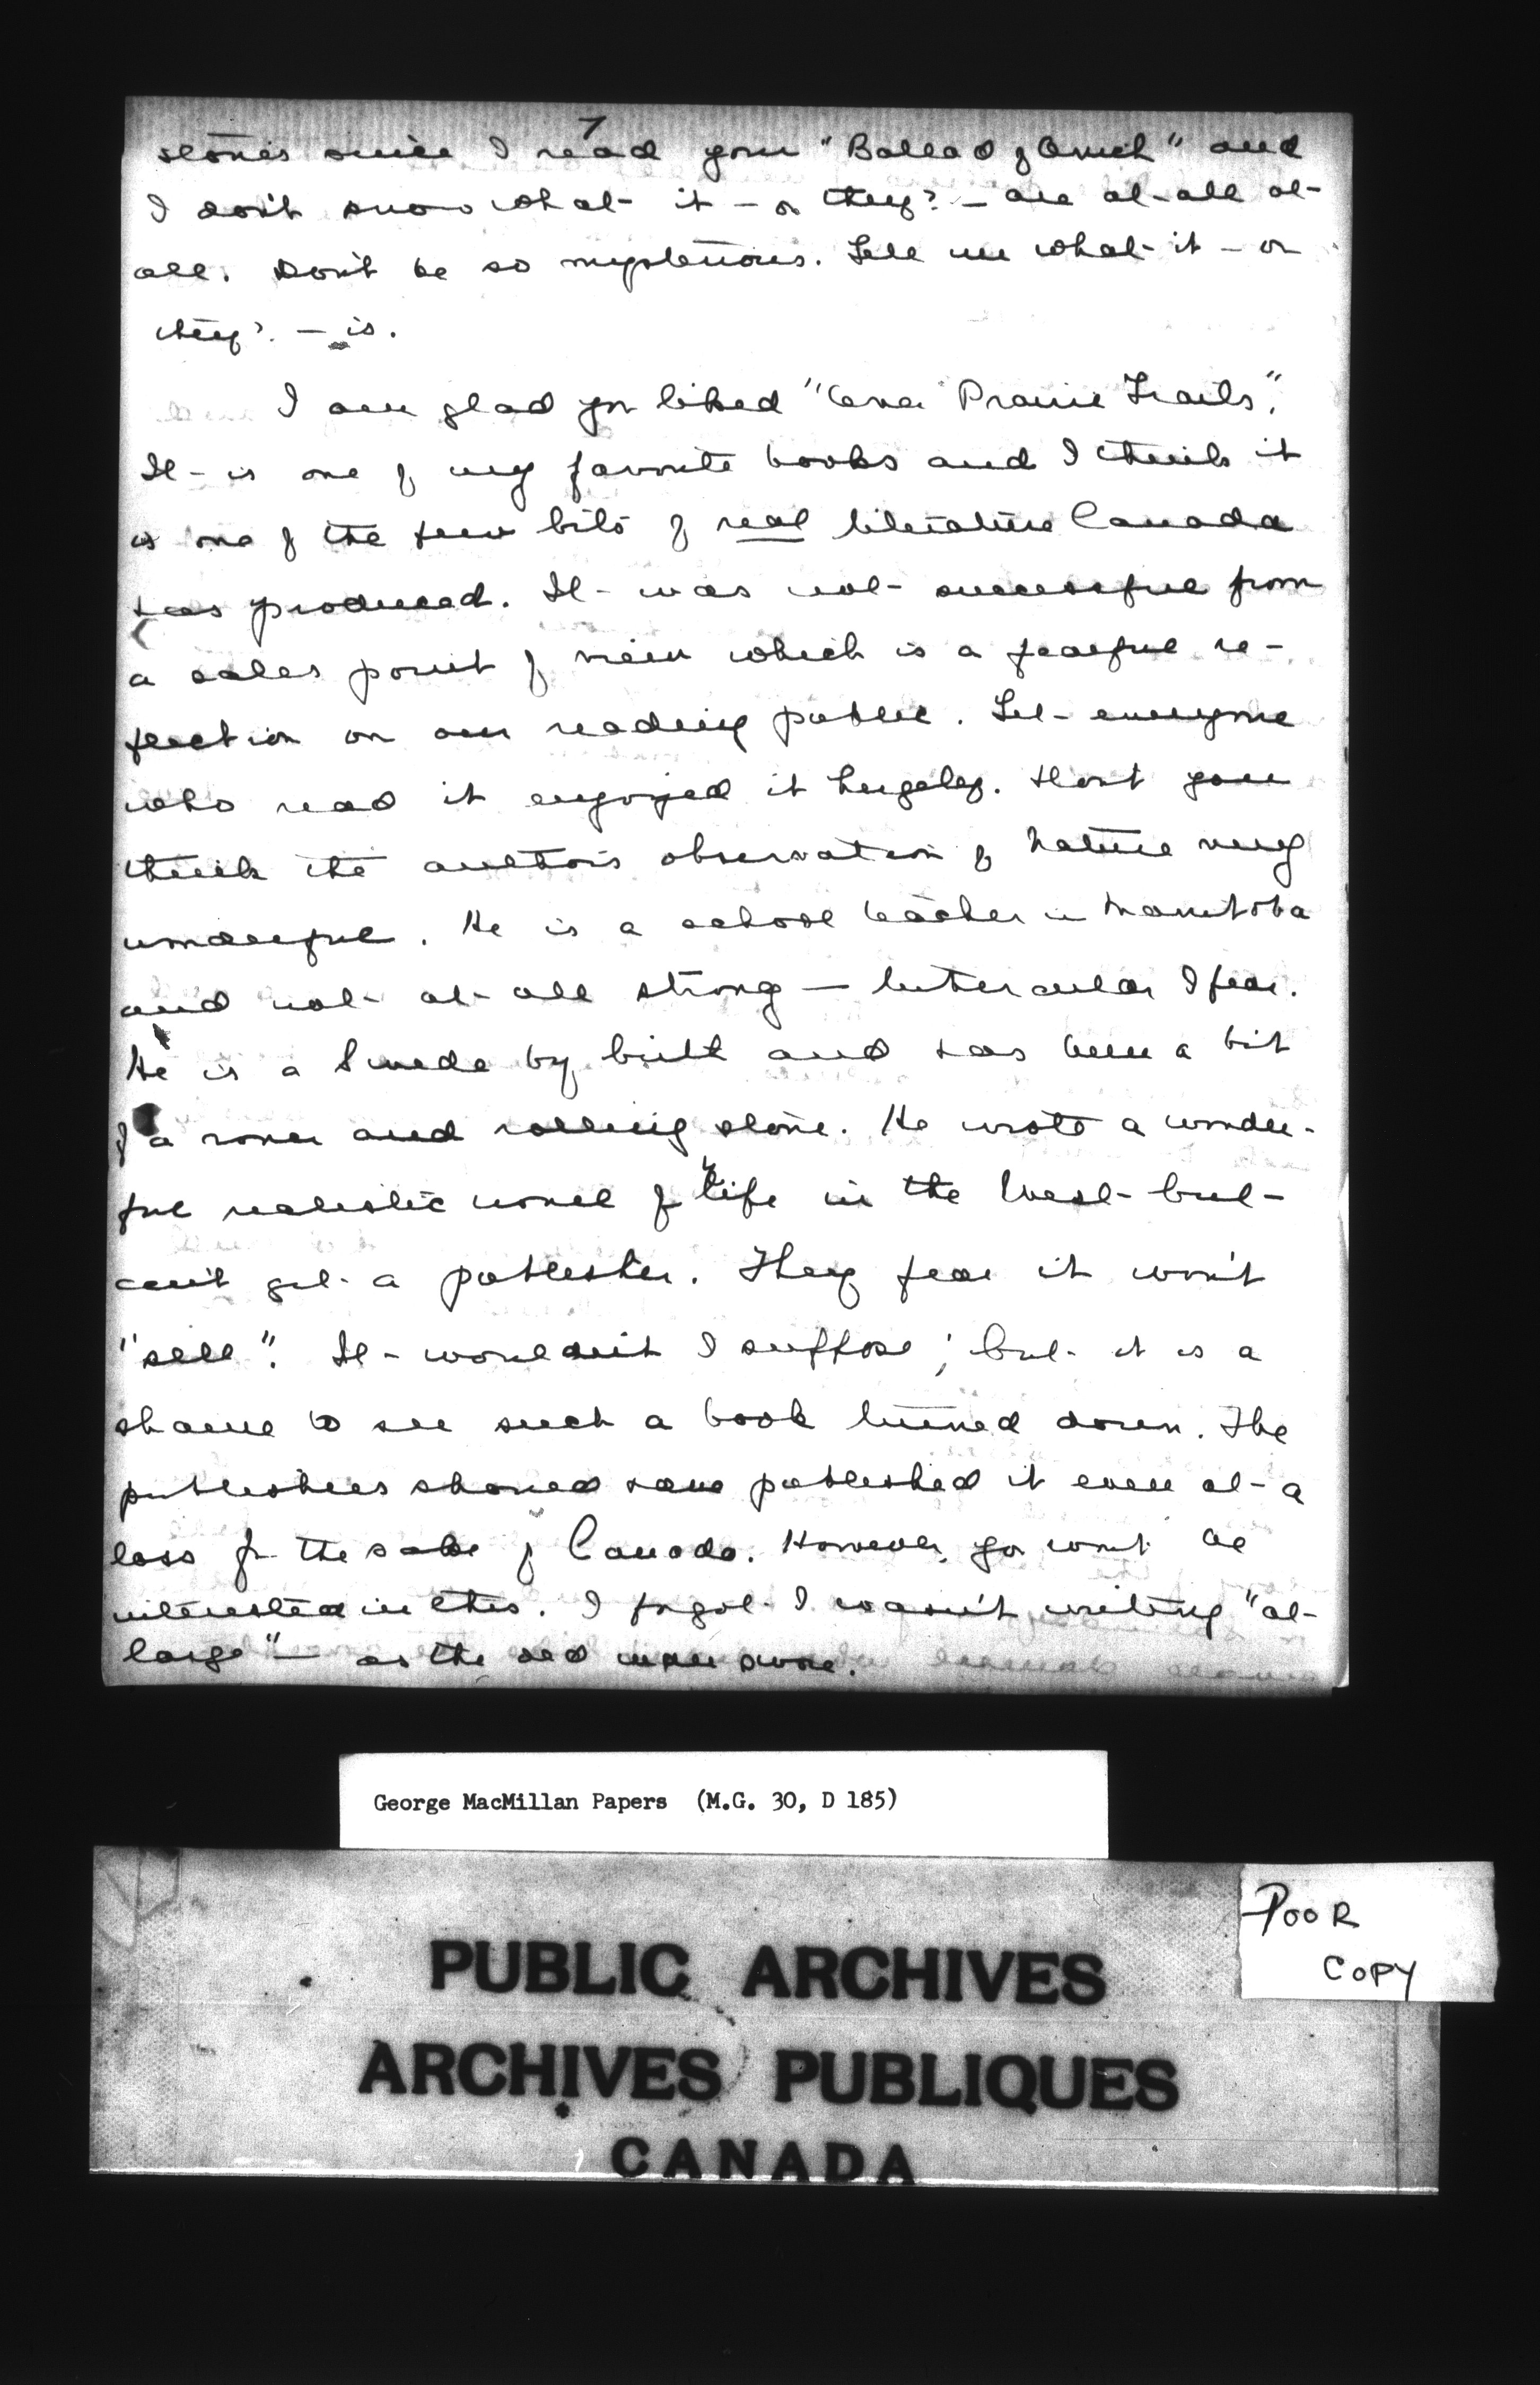 7
stories since I read your "Ballad of" and
I don't know what it – or they? – are at all at
all. Don't be so mysterious. Tell me what it – or
they? – is.
I am glad you liked "Over Prairie Trails".
It is one of my favorite books and I think it
is one of the few bits of real literature Canada
has produced. It was not successful from
a sales point of view which is a fearful re-
flection on our reading public. Yet everyone
who read it enjoyed it hugely. Don't you
think the author's observation of Nature very
wonderful. He is a school teacher in Manitoba
and not at all strong – tubercular I fear.
He is a Swede by birth and has been a bit
of a rover and rolling stone. He wrote a wonder-
ful realistic novel of life in the West but
can't get a publisher. They fear it won't
"sell". It wouldn't I suppose; but it is a
shame to see such a book turned down. The
publishers should have published it even at a
loss for the sake of Canada. However, you won't be
interested in this. I forgot I wasn't writing "at
large" – as the old man swore.
George MacMillan Papers (M.G. 30, D 185)
POOR
COPY
PUBLIC ARCHIVES
ARCHIVES PUBLIQUES
CANADA